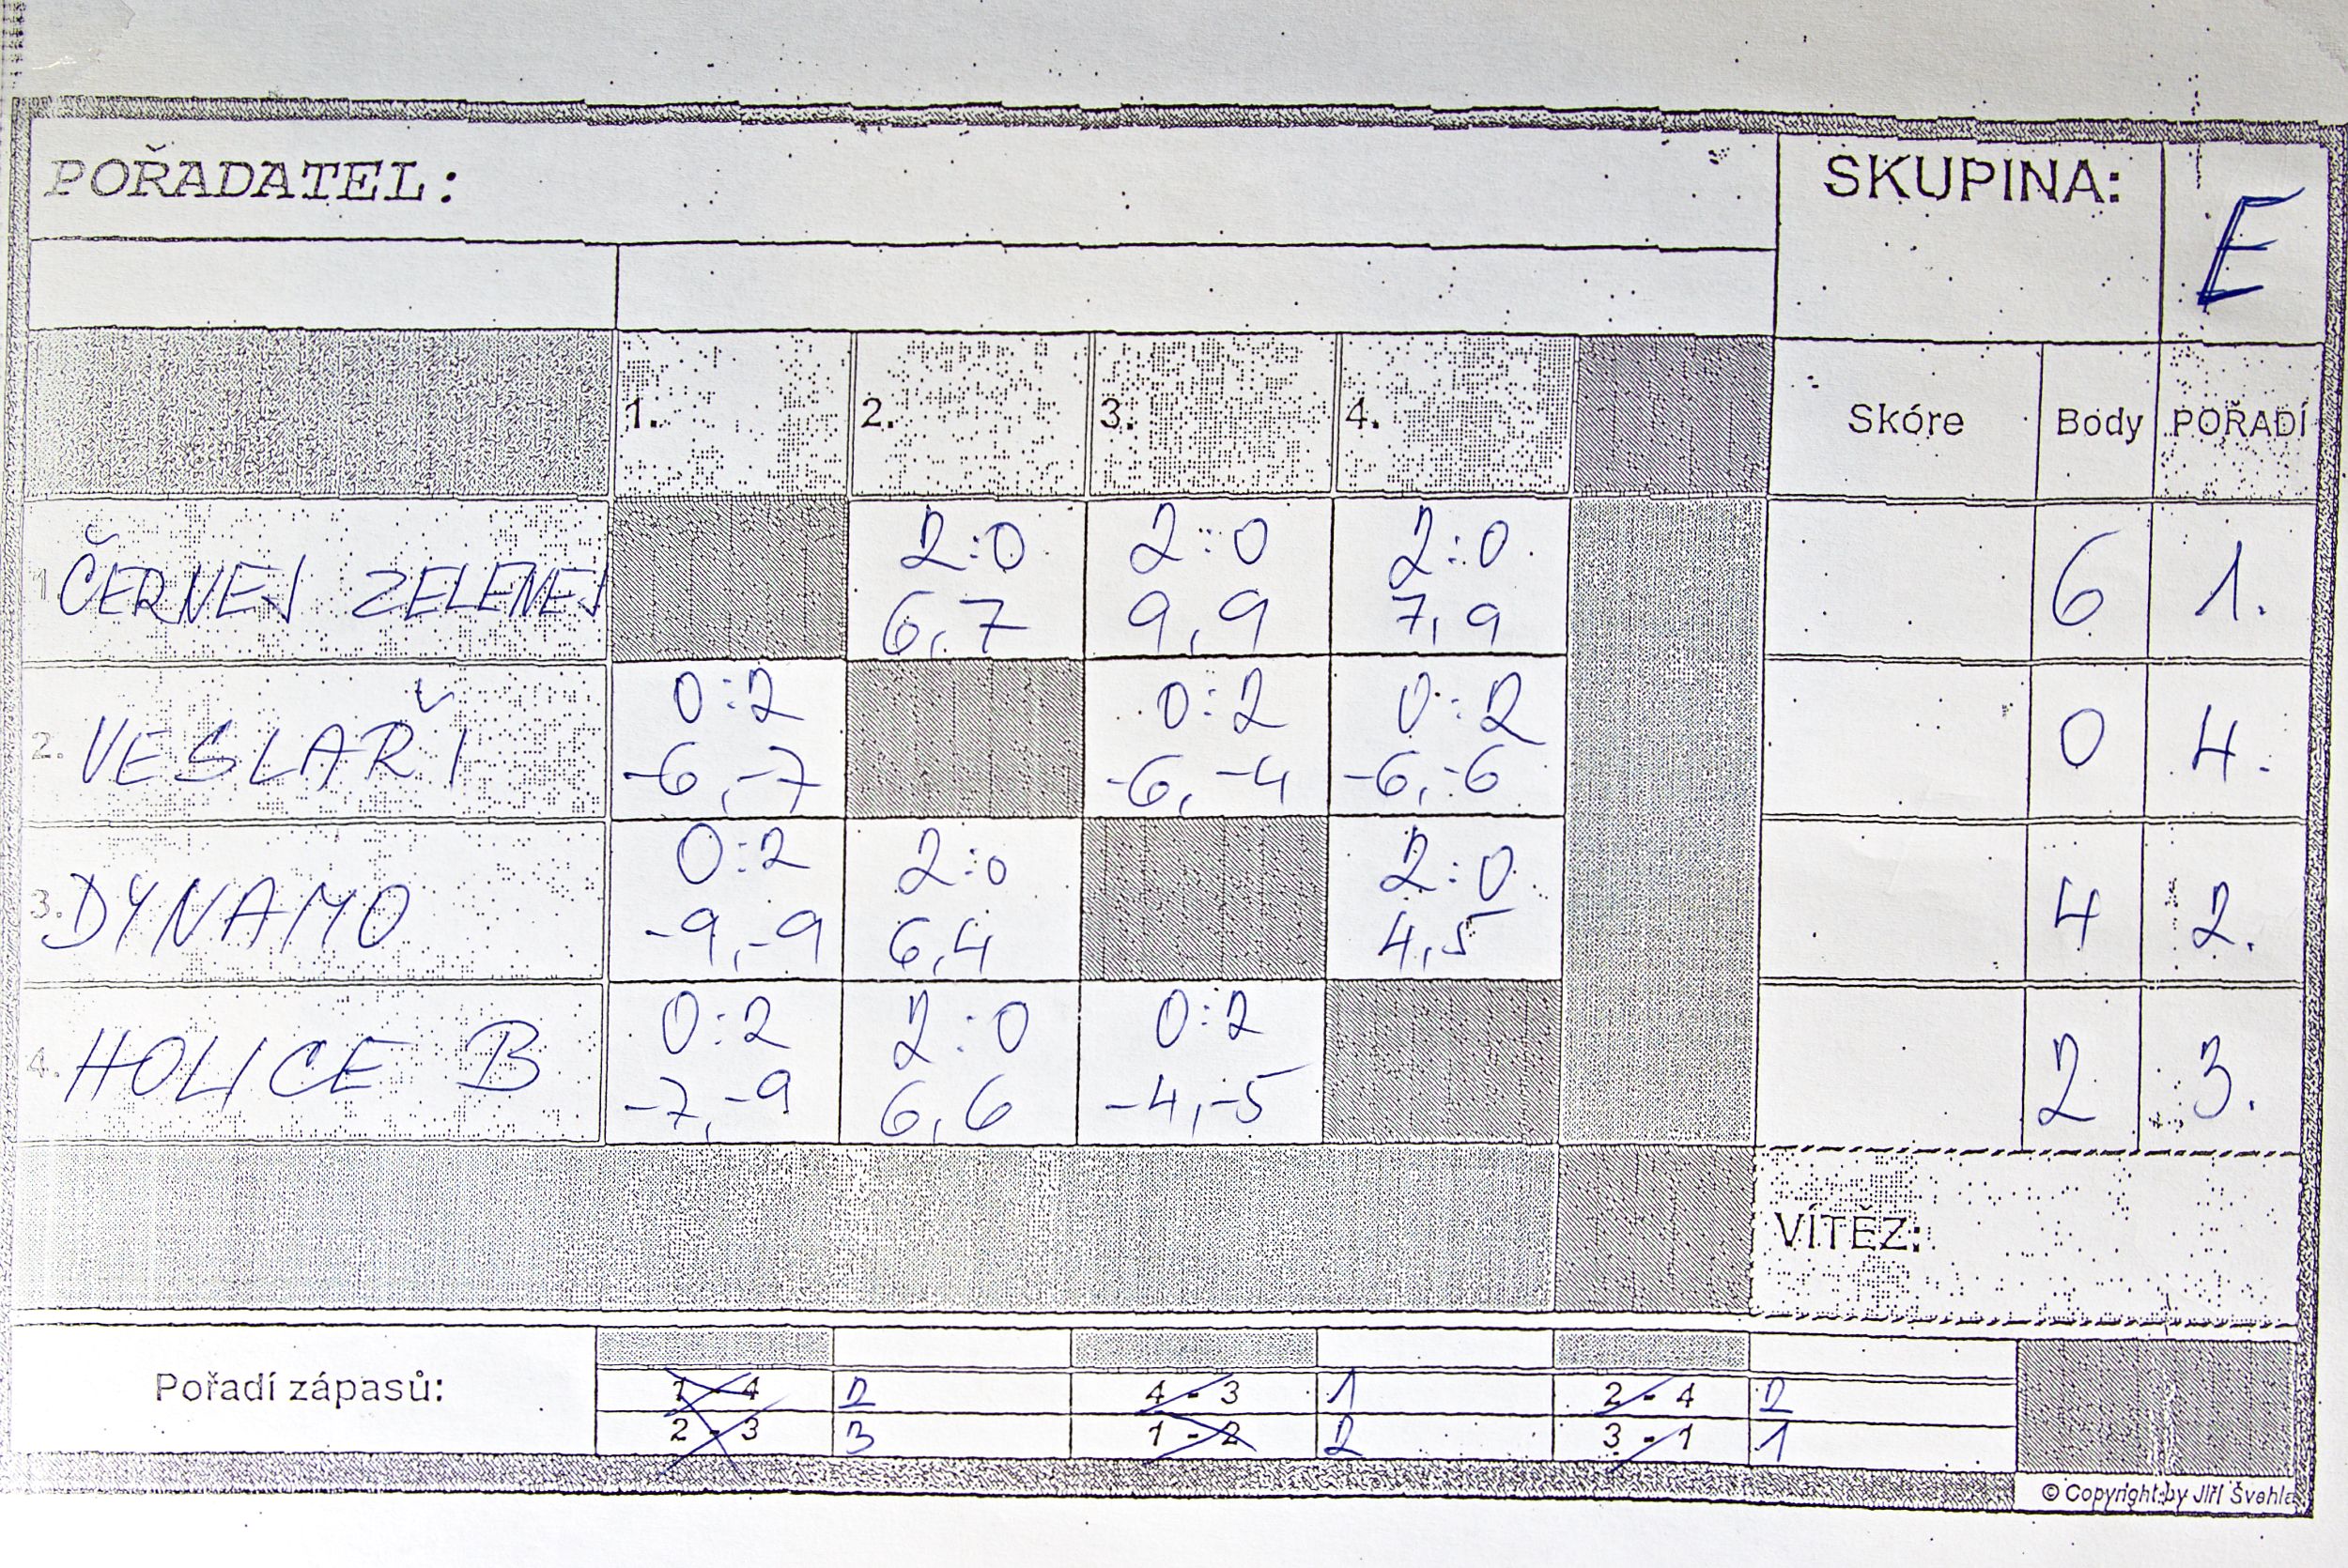 POŘADATEL:
SKUPINA: E
1. 2. 3. 4. Skóre Body POŘADÍ
1. ČERVENEJ ZELENEJ 2:0 2:0 2:0 6 1.
6,7 9,9 7,9
2. VESLAŘI 0:2 0:2 0:2 0 4.
-6,-7 -6,-4 -6,-6
3. DYNAMO 0:2 2:0 2:0 4 2.
-9,-9 6,4 4,5
4. HOLICE B 0:2 2:0 0:2 2 3.
-7,-9 6,6 -4,-5
VÍTĚZ:
Pořadí zápasů:
1 - 4 2 4 - 3 1 2 - 4 2
2 - 3 3 1 - 2 2 3 - 1 1
© Copyright by Jiří Švehla